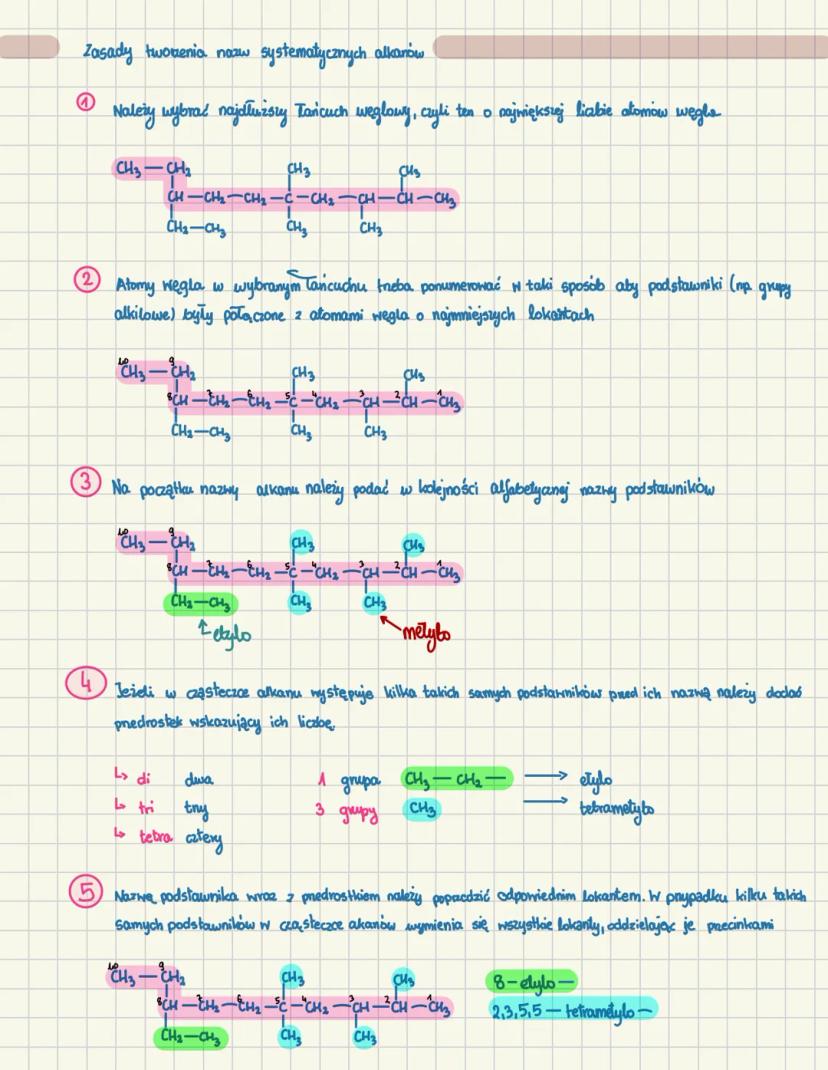 Zasady tworzenia nazw systematycznych alkanów
1 Należy wybrać najdłuższy łańcuch węglowy, czyli ten o największej liczbie atomów węgla
CH₃ — CH₂ CH₃ CH₃
CH — CH₂ — CH₂ — C — CH₂ — CH — CH — CH₃
CH₂ — CH₃ CH₃ CH₃
2 Atomy węgla w wybranym łańcuchu trzeba ponumerować w taki sposób aby podstawniki (np. grupy
alkilowe) były połączone z atomami węgla o najmniejszych lokantach
10 9
CH₃ — CH₂ CH₃ CH₃
8 CH — 7 CH₂ — 6 CH₂ — 5 C — 4 CH₂ — 3 CH — 2 CH — 1 CH₃
CH₂ — CH₃ CH₃ CH₃
3 Na początku nazwy alkanu należy podać w kolejności alfabetycznej nazwy podstawników
10 9
CH₃ — CH₂ CH₃ CH₃
8 CH — 7 CH₂ — 6 CH₂ — 5 C — 4 CH₂ — 3 CH — 2 CH — 1 CH₃
CH₂ — CH₃ CH₃ CH₃
etylo metylo
4 Jeżeli w cząsteczce alkanu występuje kilka takich samych podstawników przed ich nazwą należy dodać
przedrostek wskazujący ich liczbę
↳ di dwa 1 grupa CH₃ — CH₂ — → etylo
↳ tri trzy 3 grupy CH₃ → tetrametylo
↳ tetra cztery
5 Nazwę podstawnika wraz z przedrostkiem należy poprzedzić odpowiednim lokantem. W przypadku kilku takich
samych podstawników w cząsteczce akanów wymienia się wszystkie lokanty, oddzielając je przecinkami
10 9
CH₃ — CH₂ CH₃ CH₃ 8 - etylo —
8 CH — 7 CH₂ — 6 CH₂ — 5 C — 4 CH₂ — 3 CH — 2 CH — 1 CH₃ 2,3,5,5 — tetrametylo —
CH₂ — CH₃ CH₃ CH₃